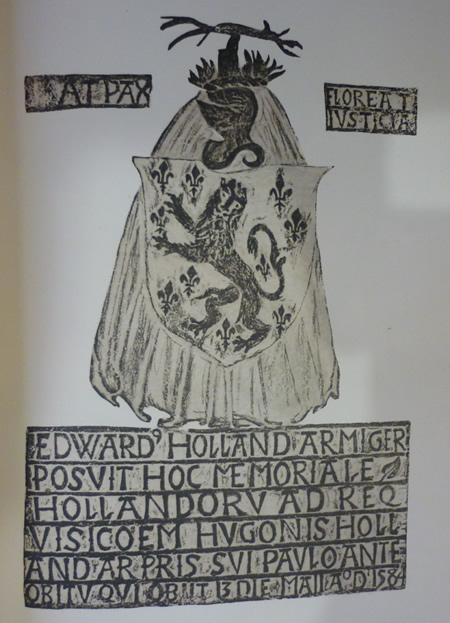 AT PAX
FLOREAT
IUSTICIA
EDWARD9 HOLLAND ARMIGER
POSVIT HOC MEMORIALE
HOLLANDORV AD REQ
VISICOEM HVGONIS HOLL-
AND AR PRIS SVI PAVLO ANTE
OBITV QVI OBIIT 13 DIE MAII Ao D 1584